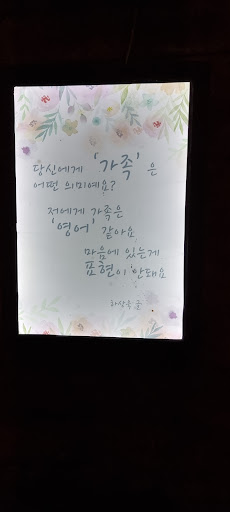 당신에게 '가족'은
어떤 의미예요?
저에게 가족은
'영어' 같아요
마음에 있는게
표현이 안돼요
하상욱 글